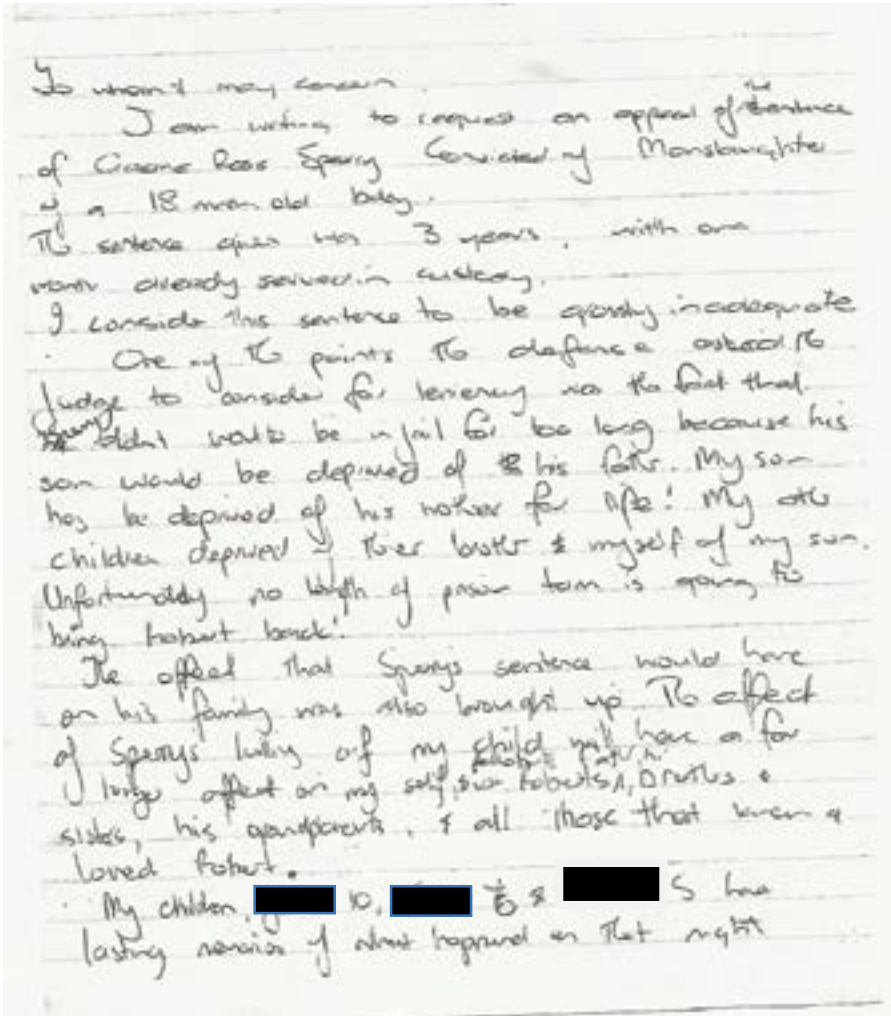 To whom it may concern.
I am writing to request an appeal of the sentence
of Graeme Ross Sperry Convicted of Manslaughter
of a 18 month old baby.
The sentence given was 3 years, with one
month already served in custody.
I consider this sentence to be grossly inadequate
One of the points the defense asked the
Judge to consider for leniency was the fact that
Sperry didnt want to be in jail for too long because his
son would be deprived of his father. My son
has be deprived of his mother for life! My other
children deprived of thier brother & myself of my son.
Unfortunately no length of prison term is going to
bring Robert back!
The effect that Sperrys sentence would have
on his family was also brought up The affect
of Sperrys of my child will have a far
longer affect on my self, Roberts brothers &
sister, his grandparents, & all those that knew &
loved Robert.
My children, 10, & 5 have
lasting memories of what happened on that night